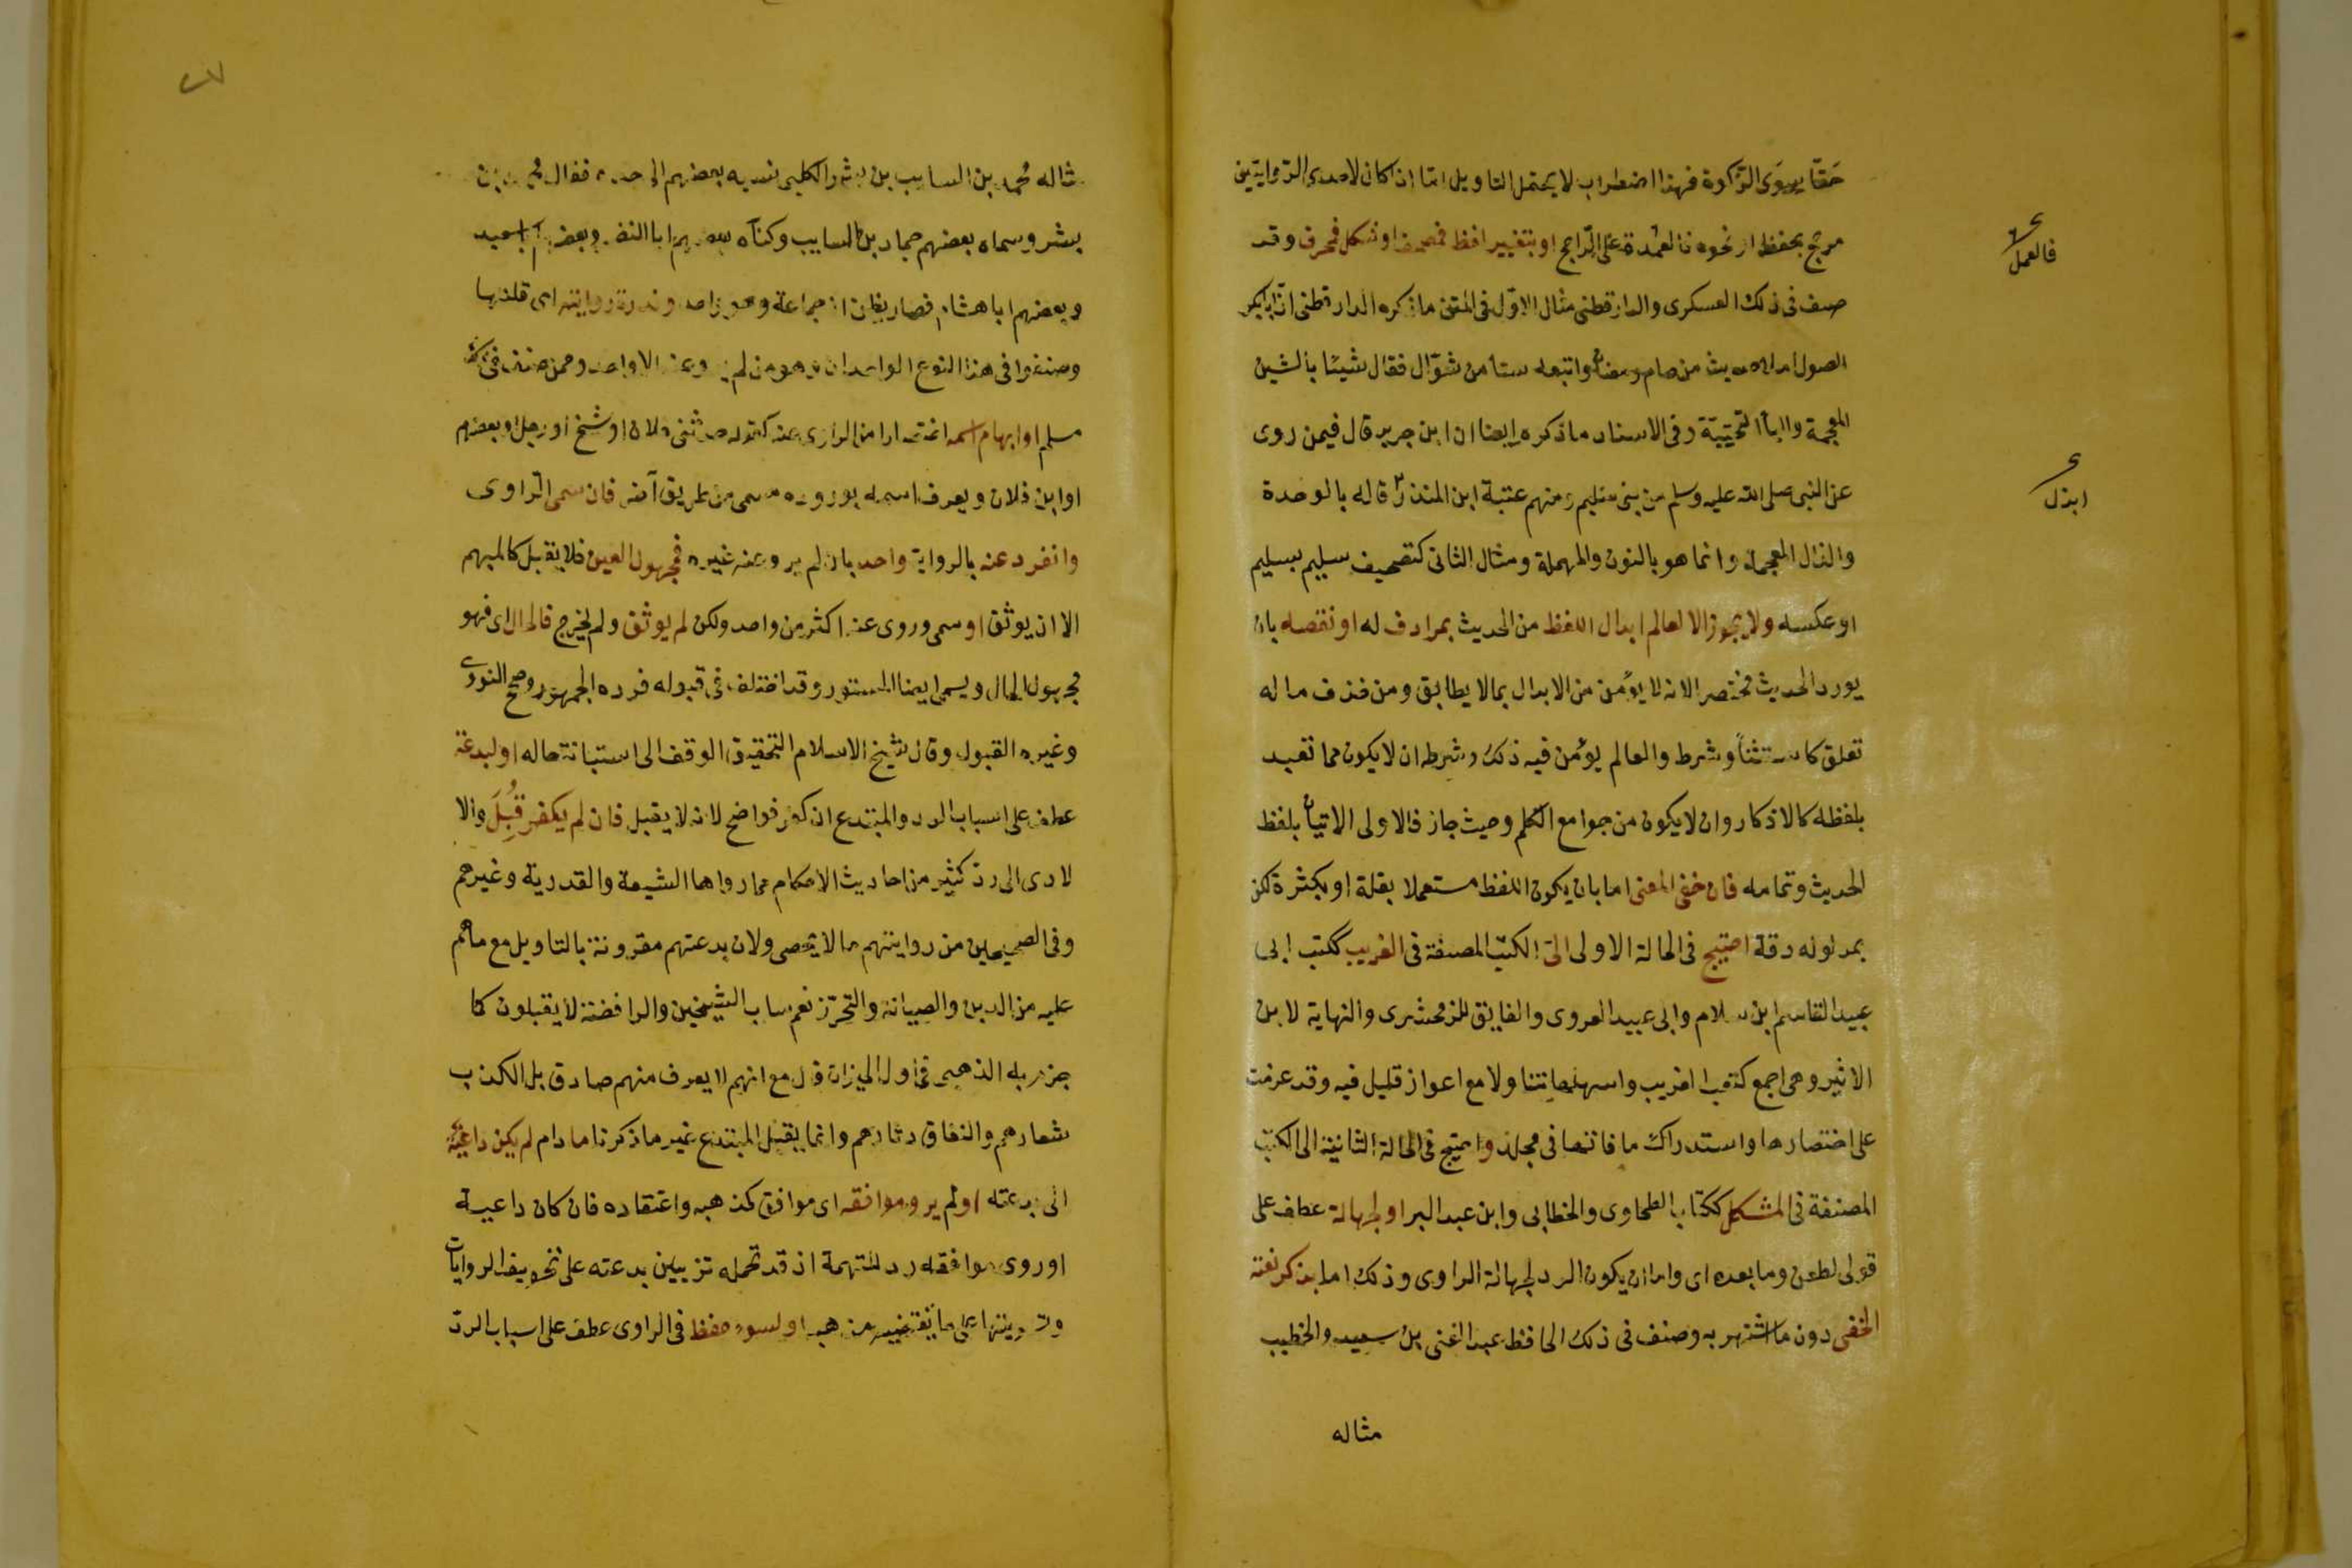 حقّا سوى الزكوة فهذا اضطراب لا يحتمل التاويل امّا اذا كان لاحدى الرّوايتين
مرجح بحفظ او نحوه فالعمدة على الرّاجح او بتغيير لفظ فمصحف او شكل فمحرف وقد
صنف فى ذلك العسكرى والدارقطنى مثال الاوّل فى المتن ما ذكره الدارقطنى انّ ابا بكر
الصولى املا حديث من صام رمضان واتبعه ستا من شوّال فقال شيئا بالشين
المعجمة واليا التحتيّة وفى الاسناد ما ذكره ايضا ان ابن جرير قال فيمن روى
عن النبى صلى الله عليه وسلم من بنى سليم ومنهم عتبة ابن المنذر قاله بالوحدة
والذال المعجمة وانما هو بالنون والمهملة ومثال الثانى كتصحيف سليم بسليم
او عكسه ولا يجوز الا لعالم ابدال اللفظ من الحديث بمرادف له او نقصه بان
يورد الحديث مختصرا لانه لا يؤمن من الابدال بما لا يطابق ومن حذف ما له
تعلق كاستثنأ وشرط والعالم يؤمن فيه ذلك وشرطه ان لا يكون مما تعبد
بلفظه كالاذكار وان لا يكون من جوامع الكلم وحيث جاز فالاولى الاتيان بلفظ
الحديث وتمامه فان خفى المعنى اما بان يكون اللفظ مستعملا بقلة او بكثرة لكن
بمدلوله دقة احتيج فى الحالة الاولى الى الكتب المصنفة فى الغريب ككتب ابى
عبيد القاسم ابن سلام وابى عبيد الهروى والفايق للزمخشرى والنهاية لابن
الاثير وهى اجمع كتب الغريب واسهلها تناولا مع اعواز قليل فيه وقد عزمت
على اختصارها واستدراك ما فاتها فى مجلد واحتيج فى الحالة الثانية الى الكتب
المصنفة فى المشكل ككتاب الطحاوى والخطابى وابن عبد البر او لجهالة عطف على
قولى لطعن وما بعده اى واما ان يكون الرد لجهالة الراوى وذلك اما بذكر نعته
الخفى دون ما اشتهر به وصنف فى ذلك الحافظ عبد الغنى بن سعيد والخطيب
مثاله
فالعمل
ابذل
مثاله محمد بن السايب بن بشر الكلبى نسبه بعضهم الى جده فقال محمد بن
بشر وسماه بعضهم حماد بن السايب وكناه بعضهم ابا النضر وبعضهم ابا سعيد
وبعضهم ابا هشام فصار يظن انه جماعة وهو واحد وندرة روايته اى قلتها
وصنفوا فى هذا النوع الواحدان وهو من لم يرو عنه الا واحد وممن صنف فى
مسلم او ابهام اسمه اختصارا من الراوى عنه كقوله حدثنى فلان او شيخ او رجل او بعضهم
او ابن فلان ويعرف اسمه بوروده مسمى من طريق آخر فان سمى الرّاوى
وانفرد عنه بالرواية واحد بان لم يرو عنه غيره فمجهول العين فلا يقبل كالمبهم
الا ان يوثق او سمى وروى عنه اكثر من واحد ولكن لم يوثق ولم يخرج فالحال اى فهو
مجهول الحال ويسمى ايضا المستور وقد اختلف فى قبوله فرده الجمهور وصحح النووى
وغيره القبول وقال شيخ الاسلام التحقيق الوقف الى استبانة حاله او لبدعة
عطف على اسباب الرد والمبتدع ان كفر فواضح لانه لا يقبل فان لم يكفر قُبِلَ والا
لادى الى ردّ كثير من احاديث الاحكام مما رواها الشيعة والقدرية وغيرهم
وفى الصحيحين من روايتهم ما لا يحصى ولان بدعتهم مقرونة بالتاويل مع ما هم
عليه من الدين والصيانة والتحرّز نعم ساب الشيخين والرافضة لا يقبلون كما
جزم به الذهبى فى اول الميزان قال مع انهم لا يعرف منهم صادق بل الكذب
شعارهم والنفاق دثارهم وانما يقبل المبتدع غير ما ذكرنا ما دام لم يكن داعية
الى بدعته او لم يرو موافقه اى موافق مذهبه واعتقاده فان كان داعية
او روى موافقه رد للتهمة اذ قد تحمله تزيين بدعته على تحريف الروايات
وتسويتها على ما يقتضيه مذهبه او لسوء حفظ فى الراوى عطف على اسباب الردّ